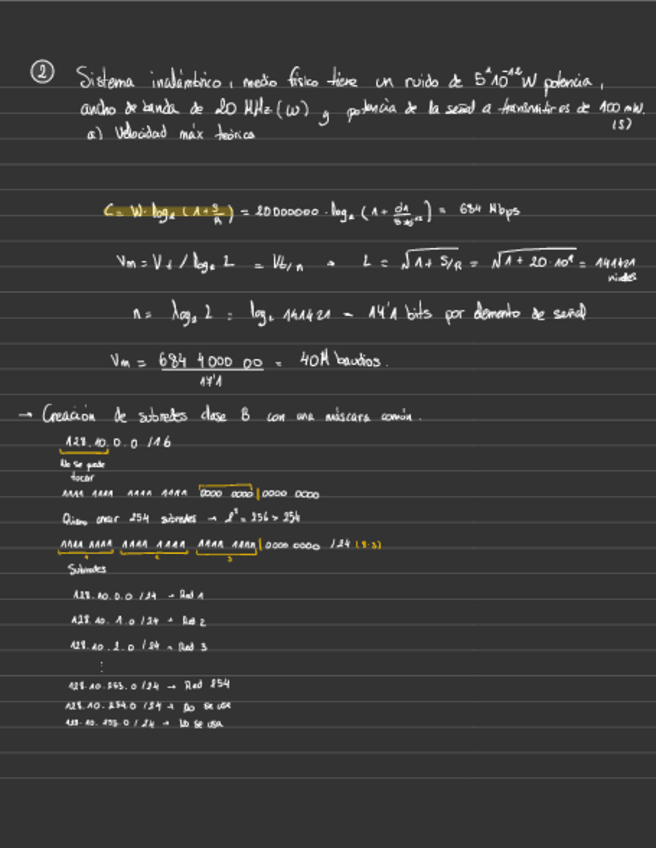 ② Sistema inalámbrico, medio físico tiene un ruido de 5·10⁻¹² W potencia,
ancho de banda de 20 MHz (W) y potencia de la señal a transmitir es de 100 mW.
(S)
a) Velocidad máx teórica
C = W · log₂ (1 + S/R) = 20000000 · log₂ (1 + 0'1/5·10⁻¹²) = 684 Mbps
Vm = Vt / log₂ L = Vt/n → L = √1 + S/R = √1 + 20·10⁹ = 141421
niveles
n = log₂ L = log₂ 141421 = 17'1 bits por elemento de señal
Vm = 684 4000 00 / 17'1 = 40M baudios.
→ Creación de subredes clase B con una máscara común.
128.10.0.0 /16
No se puede
tocar
1111 1111 1111 1111 0000 0000 | 0000 0000
Quiero crear 254 subredes → 2⁸ = 256 > 254
1111 1111 1111 1111 1111 1111 | 0000 0000 /24 (8·3)
1 2 3
Subredes
128.10.0.0 /24 → Red 1
128.10.1.0 /24 → Red 2
128.10.2.0 /24 → Red 3
⋮
128.10.253.0 /24 → Red 254
128.10.254.0 /24 → No se usa
128.10.255.0 /24 → No se usa